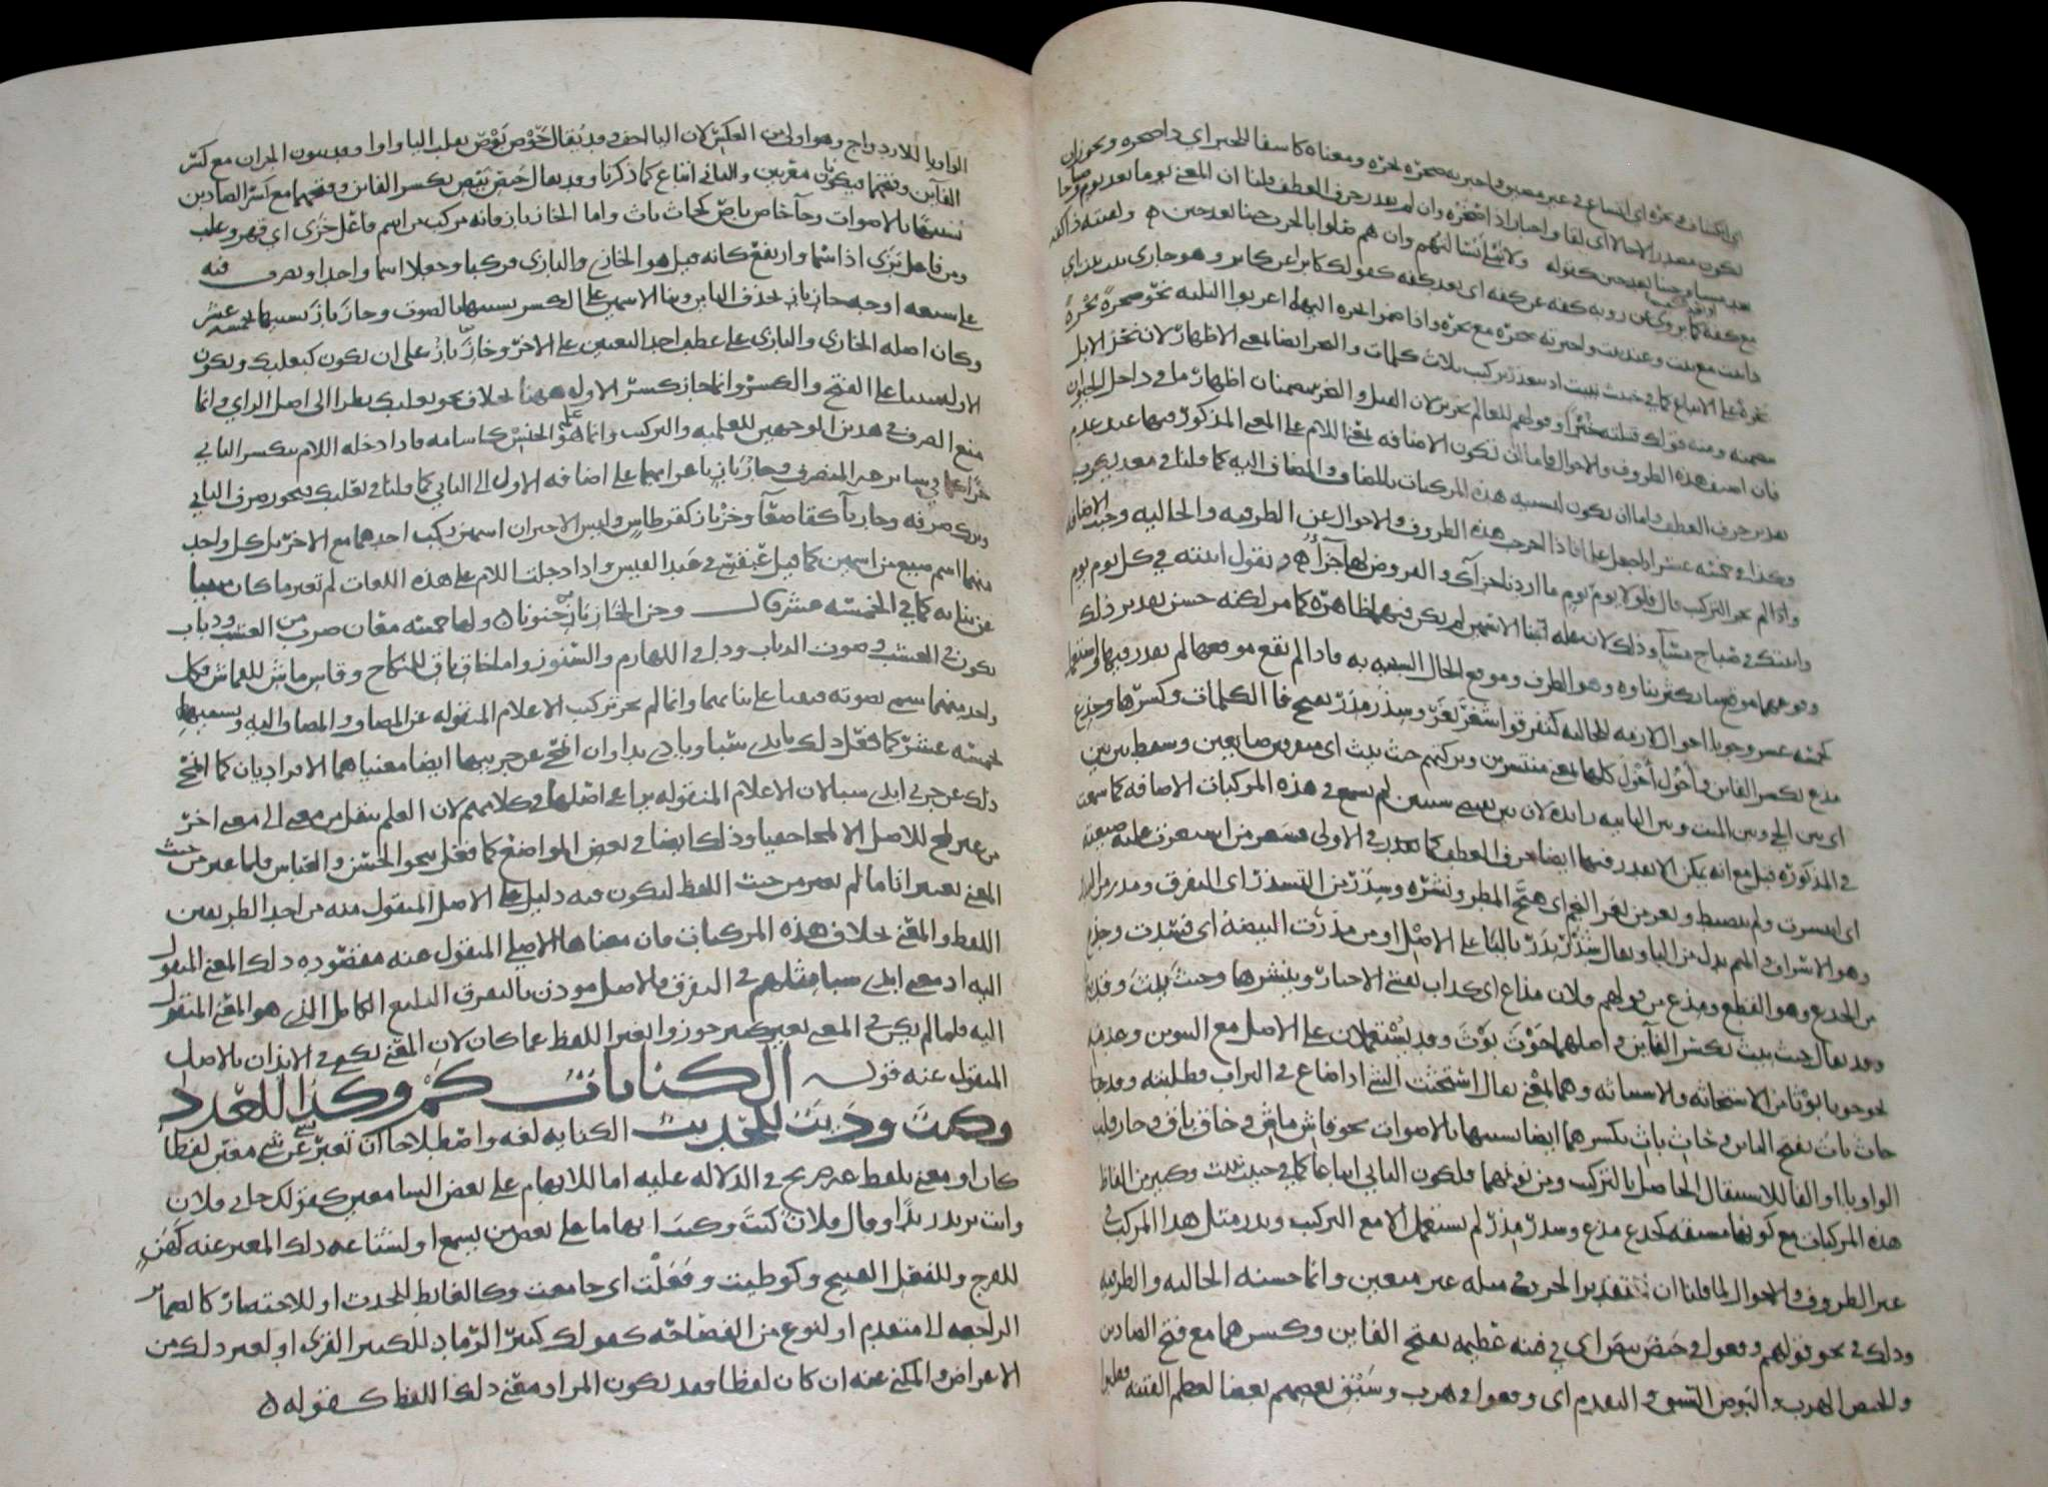 اي انكشاف في بحره اي اتساع في غير مضيق واخبرته صحرة بحرة ومعناه كاشفا للخبر اي ذا صحرة ويجوز ان
يكون مصدر الاحالا اي لقاء واخبارا ذا صحرة وان لم يقدر حرف العطف قلنا ان المعنى يوما بعد يوم وصباحا
بعد مساء وحينا بعد حين كقوله ولا تبلى بسالتهم وان هم صلوا بالحرب حينا بعد حين ولقيته ذا كفة
مع كفة كما يروى عن رؤبة كفة عن كفة اي بعد كفة كقولك كابرا عن كابر وهو جاري بيت بيت اي
ذا بيت مع بيت وعند بيت واخبرته صحرة مع بحرة واذا ضموا نحره اليهما اعربوا الثلثة نحو صحرة بحرة
نحرة على الاتباع كما في خبيث نبيث اذ يتعذر تركيب ثلاث كلمات والنحر ايضا بمعنى الاظهار لان نحر الابل
يتضمنه ومنه قولك قتلته خبرا وقولهم للعالم نحرير لان القتل والنحر يتضمنان اظهار ما في داخل الحيوان
فان اضيف هذه الظروف والاحوال فاما ان تكون الاضافة بمعنى اللام على المعنى المذكور فيهما عند عدم
تقدير حرف العطف واما ان يكون لتشبيه هذه المركبات بالمضاف والمضاف اليه كما قلنا في معديكرب
وكذا في خمسة عشر اذا جعل علما فاذا اخرجت هذه الظروف والاحوال عن الظرفية والحالية وجبت الاضافة
واذا لم يجز التركيب قال فلولا يوم يوم ما اردنا جزاءك والقروض لها جزاء وتقول اتيته في كل يوم يوم
واتيتك في صباح مساء وذلك لان علة بناء الاسمين لم يكن فيهما ظاهرة كما مر لكنه حسن تقدير ذلك
وقوعهما موضعا يكثر بناؤه وهو الظرف وموقع الحال المشبه به فاذا لم تقع موقعهما لم يقدر فيهما واستعمل
كخمسة عشر وجوبا احوال لازمة للحالية كتفرقوا شغر بغر وشذر مذر بفتح فاء الكلمات وكسرها وخذع
مذع بكسر الفاءين واخول اخول كلها بمعنى منتشرين وتركتهم حيث بيث اي متفرقين ضائعين وسقط بين بين
اي بين الحي وبين الميت وبين الثانية زائدة لان بين يقتضي شيئين لم يسمع في هذه المركبات الاضافة كما سمعت
في المذكورة قبل مع انه يمكن الا يقدر فيهما ايضا حرف العطف كما يقدر في الاولى فشغر من اشتغرت عليه ضيعته
اي انتشرت ولم ينضبط وبغر من بغر النجم اي هيج المطر ونشره وشذر من التشذر اي التفرق ومذر من التبذير
وهو الاسراف والميم بدل من الباء ويقال شذر بذر بالباء على الاصل او من مذرت البيضة اي فسدت وخذع
من الخذع وهو القطع ومذع من قولهم فلان مذاع اي كذاب يفشي الاخبار وينشرها وحيث بيث وقد ينون
وقد يقال حيث بيث بكسر الفاءين واصلهما حوث بوث وقد يستعملان على الاصل مع التنوين وعدمه
نحو حوثا بوثا من الاستحاثة والاستباثة وهما بمعنى يقال استحثت الشيء اذا ضاع في التراب فطلبته وقد جاء
حاث باث بفتح الثاءين وحاث باث بكسرهما ايضا تشبيها بالاصوات نحو قاش ماش وخاق باق وجاز قلب
الواو ياء او الفا للاستثقال الحاصل بالتركيب ومن نونهما فلكون الثاني اتباعا كما في خبيث نبيث وكثير من الفاظ
هذه المركبات مع كونها مشتقة كخذع مذع وشذر مذر لم تستعمل الا مع التركيب ويندر مثل هذا المركب في
غير الظروف والاحوال لما قلنا ان تقدير الحرف في مثله غير متعين وانما حسنه الحالية والظرفية
وذلك في نحو قولهم وقعوا في حيص بيص اي في فتنة عظيمة بفتح الفاءين وكسرهما مع فتح الصادين
والحيص الهرب والبوص السبق والتقدم اي وقعوا في هرب وسبق بعضهم بعضا لعظم الفتنة فقلبت
الواو ياء للازدواج وهو اولى من العكس لان الياء اخف وقد يقال حوص بوص بقلب الياء واوا وقد ينون الجزآن مع كسر
الفاءين وفتحهما فيكونان معربين والثاني اتباع كما ذكرنا وقد يقال حيص بيص بكسر الفاءين وفتحهما مع كسر الصادين
تشبيها بالاصوات وجاء حاص باص كحاث باث واما الخاز باز فانه مركب من اسم فاعل خزى اي قهر وغلب
ومن فاعل بزى اذا سما وارتفع كانه قيل هو الخازي والبازي فركبا وجعلا اسما واحدا وتصرف فيه
على سبعة اوجه خاز باز بحذف الياءين وبناء الاسمين على الكسر تشبيها بالصوت وخاز باز تشبيها بخمسة عشر
وكان اصله الخازي والبازي على عطف احد النعتين على الاخر وخاز باز على ان يكون كبعلبك ويكون
الاول مبنيا على الفتح والكسر وانما جاز كسر الاول ههنا بخلاف نحو بعلبك نظرا الى اصل الزاي وانما
منع الصرف في هذين الوجهين للعلمية والتركيب وانما هو علم الجنس كاسامة فاذا دخله اللام ينكسر الثاني
جرا كما في سائر غير المنصرف وخاز باز باعرابهما على اضافة الاول الى الثاني كما قلنا في بعلبك فيجوز صرف الثاني
وترك صرفه وخازباء كقاصعاء وخزباز كقرطاس وليس الاخيران اسمين ركب احدهما مع الاخر بل كل واحد
منهما اسم صيغ من اسمين كما قيل عبقسي في عبد القيس واذا دخلت اللام على هذه اللغات لم تغير ما كان مبنيا
عن بنائه كما في الخمسة عشر قال وجن الخاز باز جنونا ولها خمسة معان ضرب من العشب وذباب
يكون في العشب وصوت الذباب وداء في اللهازم والسنور واما خاق باق للنكاح وقاش ماش للقماش فكل
واحد منهما سمي بصوته فبقيا على بنائهما وانما لم يجز تركيب الاعلام المنقولة عن المضاف والمضاف اليه وتشبيهها
بخمسة عشر كما فعل ذلك بايدي سبا وبادي بدا وان انمحى عن جزئيهما ايضا معنياهما الافراديان كما انمحى
ذلك عن جزئي ايدي سبا لان الاعلام المنقولة يراعى اصلها في كلامهم لان العلم ينقل من معنى الى معنى اخر
من غير لمح للاصل الا لمحا خفيا وذلك ايضا في بعض المواضع كما فعل بنحو الحسن والعباس فلما غير من حيث
المعنى تغييرا تاما لم يغير من حيث اللفظ ليكون فيه دليل على الاصل المنقول منه من احد الطريقين
اللفظ والمعنى بخلاف هذه المركبات فان معناها الاصلي المنقول عنه مقصود من ذلك المعنى المنقول
اليه اذ معنى ايدي سبا مثلهم في التفرق والاصل موذن بالتفرق البليغ الكامل الذي هو المعنى المنقول
اليه فلما لم يكن في المعنى تغيير كثير جوزوا تغيير اللفظ عما كان لان المعنى يكفي في الايذان بالاصل
المنقول عنه قوله الكنايات كم وكذا للعدد
وكيت وذيت للحديث الكناية لغة واصطلاحا ان تعبر عن شيء معين لفظا
كان او معنى بلفظ غير صريح في الدلالة عليه اما للابهام على بعض السامعين كقولك جاءني فلان
وانت تريد زيدا وقال فلان كيت وكيت ابهاما على بعض من يسمع او لشناعة ذلك المعبر عنه كهن
للفرج وللفعل القبيح وكوطيت وفعلت اي جامعت وكالغائط للحدث او للاختصار كالضمائر
الراجعة الى متقدم او لنوع من الفصاحة كقولك كثير الرماد للكثير القرى او لغير ذلك من
الاغراض والمكنى عنه ان كان لفظا فقد يكون المراد معنى ذلك اللفظ كقوله